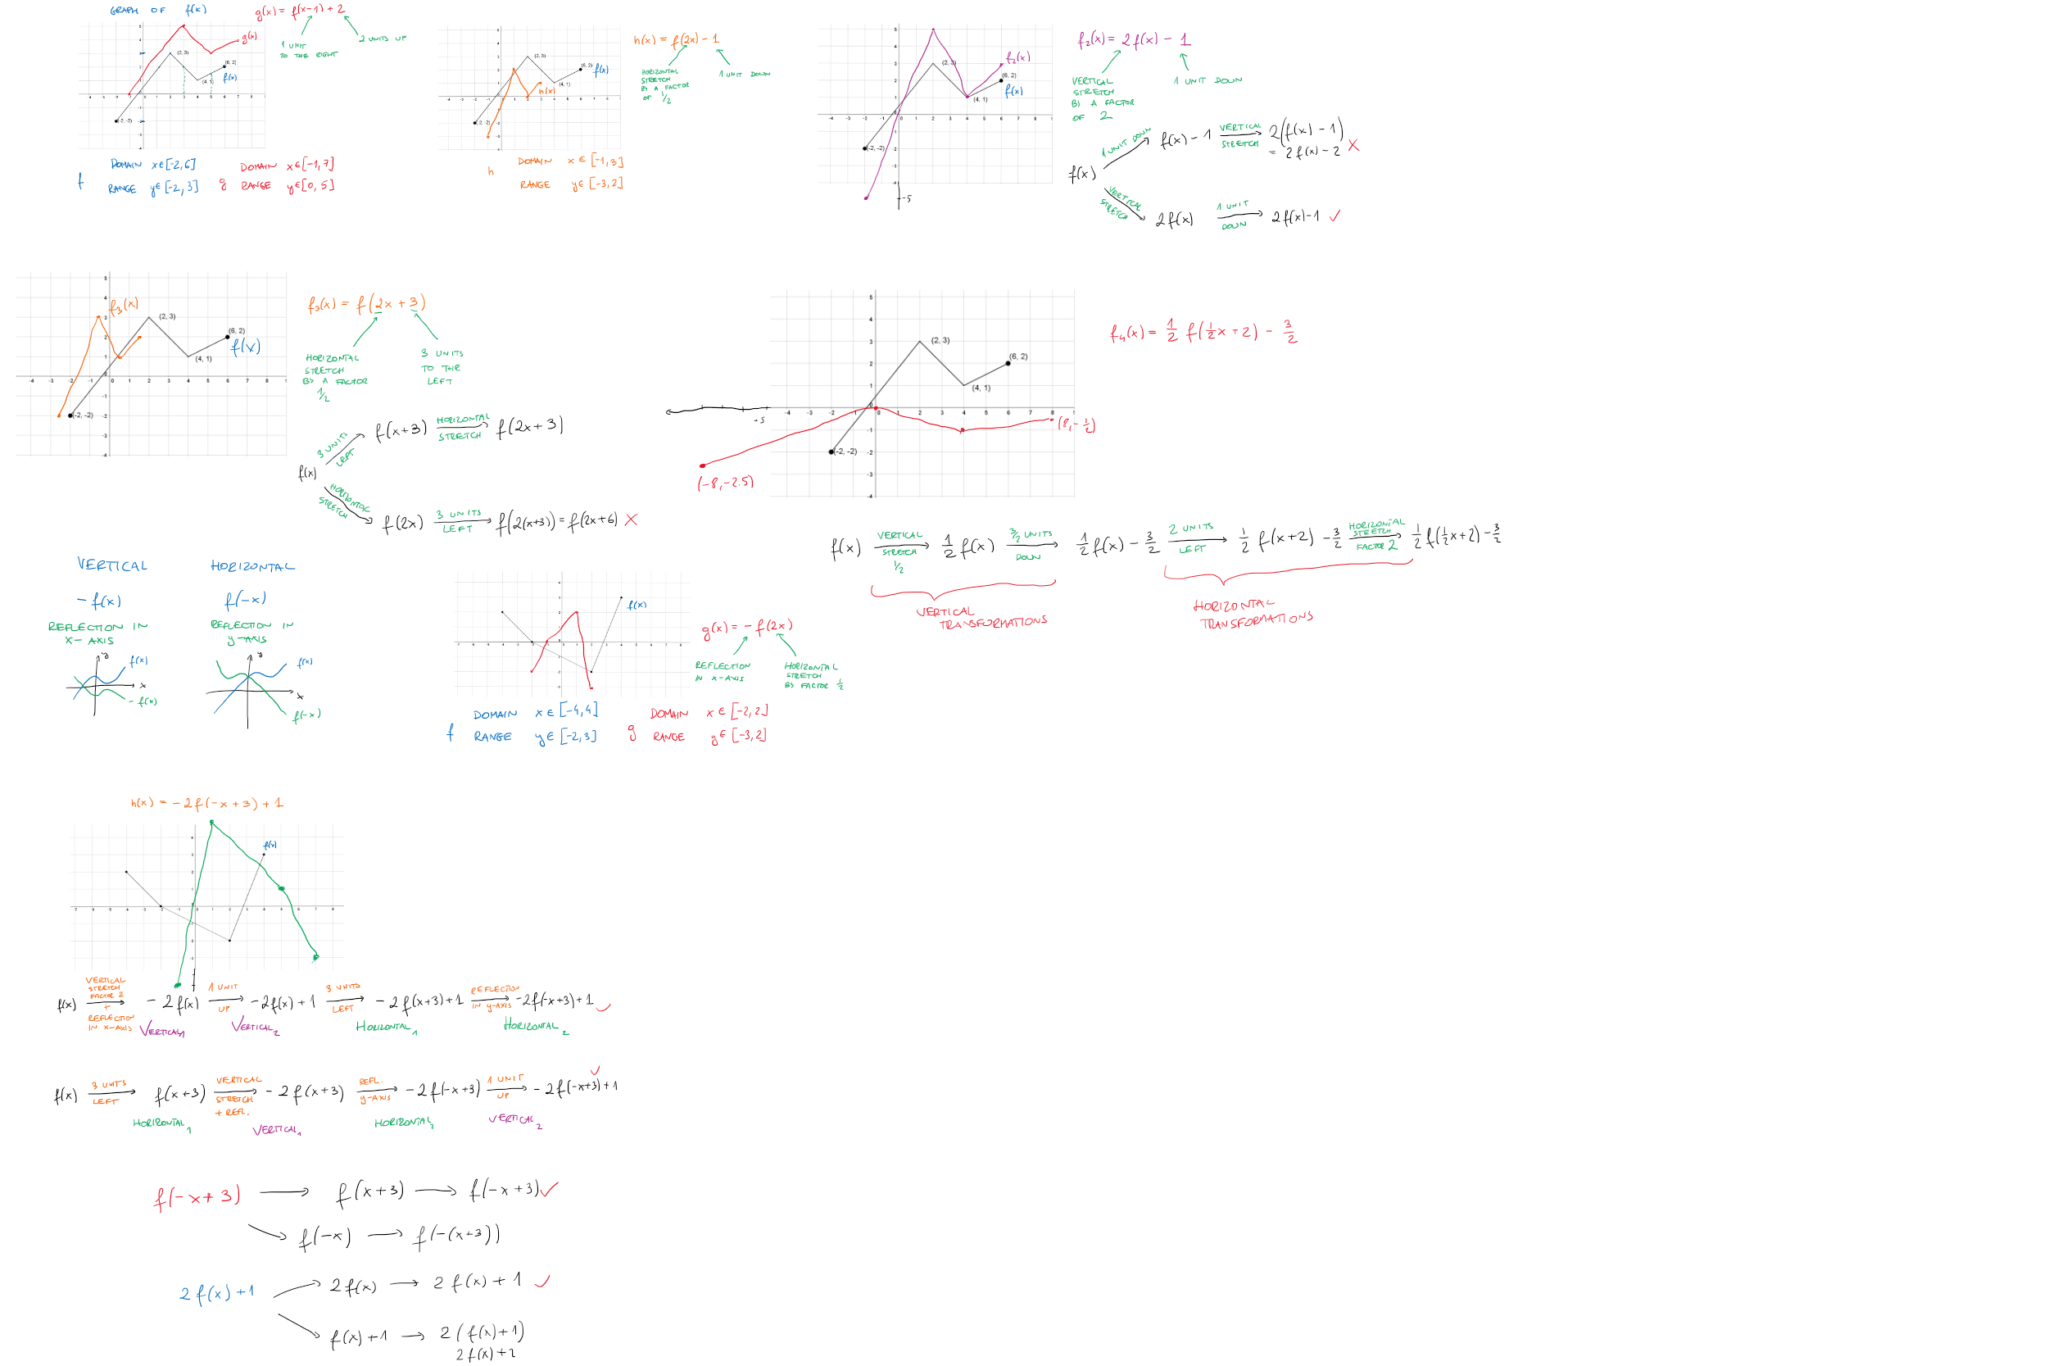 GRAPH OF f(x)
g(x) = f(x-1) + 2
1 UNIT
TO THE RIGHT
2 UNITS UP
g(x)
(2, 3)
(6, 2)
(4, 1)
f(x)
(-2, -2)
f
DOMAIN x∈[-2,6]
RANGE y∈[-2,3]
g
DOMAIN x∈[-1,7]
RANGE y∈[0,5]
h(x) = f(2x) - 1
HORIZONTAL
STRETCH
BY A FACTOR
OF 1/2
1 UNIT DOWN
(2, 3)
f(x)
(4, 1)
h(x)
h
DOMAIN x∈[-1,3]
RANGE y∈[-3,2]
f₂(x) = 2f(x) - 1
VERTICAL
STRETCH
BY A FACTOR
OF 2
1 UNIT DOWN
f₂(x)
(2, 3)
(6, 2)
f(x)
(4, 1)
(-2, -2)
-5
f(x)
1 UNIT DOWN
f(x) - 1
VERTICAL
STRETCH
2(f(x) - 1)
= 2f(x) - 2 ✗
VERTICAL
STRETCH
2f(x)
1 UNIT
DOWN
2f(x)-1 ✓
f₃(x)
(2, 3)
(6, 2)
f(x)
(4, 1)
(-2, -2)
f₃(x) = f(2x + 3)
HORIZONTAL
STRETCH
BY A FACTOR
1/2
3 UNITS
TO THE
LEFT
f(x)
3 UNITS
LEFT
f(x+3)
HORIZONTAL
STRETCH
f(2x+3)
HORIZONTAL
STRETCH
f(2x)
3 UNITS
LEFT
f(2(x+3)) = f(2x+6) ✗
f₄(x) = 1/2 f(1/2x + 2) - 3/2
(2, 3)
(6, 2)
(4, 1)
(-2, -2)
(8, -1/2)
(-8, -2.5)
-5
f(x)
VERTICAL
STRETCH
1/2
1/2 f(x)
3/2 UNITS
DOWN
1/2 f(x) - 3/2
2 UNITS
LEFT
1/2 f(x+2) - 3/2
HORIZONTAL
STRETCH
FACTOR 2
1/2 f(1/2x+2) - 3/2
VERTICAL
TRANSFORMATIONS
HORIZONTAL
TRANSFORMATIONS
VERTICAL
-f(x)
REFLECTION IN
X-AXIS
y
f(x)
x
-f(x)
HORIZONTAL
f(-x)
REFLECTION IN
y-AXIS
y
f(x)
x
f(-x)
f(x)
g(x) = -f(2x)
REFLECTION
IN X-AXIS
HORIZONTAL
STRETCH
BY FACTOR 1/2
f
DOMAIN x∈[-4,4]
RANGE y∈[-2,3]
g
DOMAIN x∈[-2,2]
RANGE y∈[-3,2]
h(x) = -2f(-x+3)+1
f(x)
f(x)
VERTICAL
STRETCH
FACTOR 2
+
REFLECTION
IN X-AXIS
-2f(x)
1 UNIT
UP
-2f(x)+1
3 UNITS
LEFT
-2f(x+3)+1
REFLECTION
IN y-AXIS
-2f(-x+3)+1 ✓
VERTICAL₁
VERTICAL₂
HORIZONTAL₁
HORIZONTAL₂
f(x)
3 UNITS
LEFT
f(x+3)
VERTICAL
STRETCH
+ REFL.
-2f(x+3)
REFL.
y-AXIS
-2f(-x+3)
1 UNIT
UP
-2f(-x+3)+1 ✓
HORIZONTAL₁
VERTICAL₁
HORIZONTAL₂
VERTICAL₂
f(-x+3) → f(x+3) → f(-x+3) ✓
f(-x) → f(-(x+3))
2f(x)+1
2f(x) → 2f(x)+1 ✓
f(x)+1 → 2(f(x)+1)
2f(x)+2